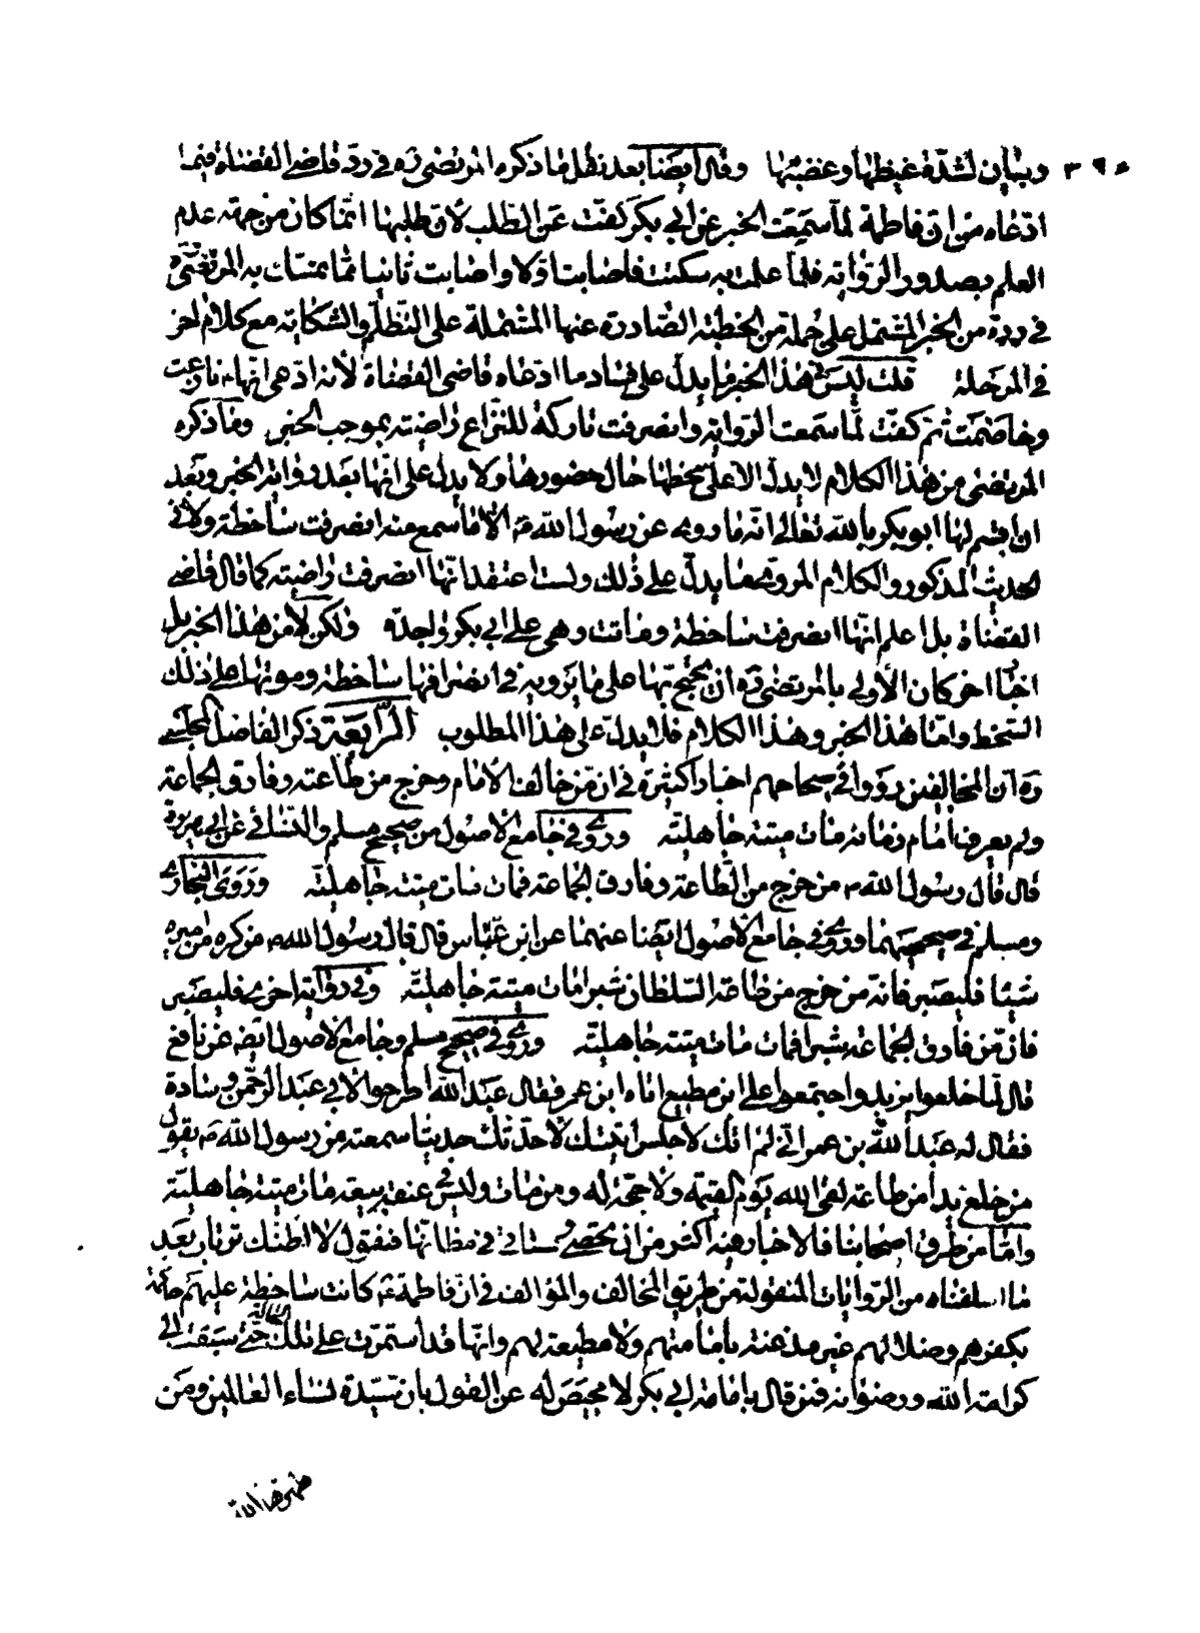 وبيان لشدّة غيظها وغضبها وقال ايضا بعد نقل ما ذكره المرتضى ره فى ردّ قاضى القضاة فيما
ادعاه من ان فاطمة لمّا سمعت الخبر عن ابى بكر كفّت عن الطلب لأن طلبها انّما كان من جهة عدم
العلم بصدور الرّواية فلما علمت به سكتت فاصابت اوّلا واصابت ثانيا ثمّا تمسّك به المرتضى
فى رده من الخبر المشتمل على جملة من الخطبة الصّادرة عنها المشتملة على التظلّم والشكاية مع كلام اخر
فى المرحلة قلت ليس فى هذا الخبر ما يدلّ على فساد ما ادعاه قاضى القضاة لأنه ادعى انها نازعت
وخاصمت ثم كفّت لمّا سمعت الرّواية وانصرفت تاركة للنّزاع راضية بموجب الخبر وما ذكره
المرتضى من هذا الكلام لا يدلّ الا على سخطها حال حضورها ولا يدلّ على انّها بعد رواية الخبر وبعد
ان اقسم لها ابو بكر بالله تعالى انّه ما روى عن رسول الله ص الا ما سمع منه انصرفت ساخطة ولا فى
الحديث المذكور والكلام المروى ما يدلّ على ذلك ولست اعتقد انّها انصرفت راضية كما قال قاضى
القضاة بل اعلم انّها انصرفت ساخطة وماتت وهى على ابى بكر واجدة ولكن لا من هذا الخبر بل
اخبار اخر كان الأولى بالمرتضى ره ان يحتجّ بها على ما يرويه فى انصرافها ساخطة وموتها على ذلك
السّخط وامّا هذا الخبر وهذا الكلام فلا يدلّ على هذا المطلوب الرّابعة ذكر الفاضل المجلسى
ره ان المخالفين رووا فى صحاحهم اخبارا كثيرة فى ان من خالف الامام وخرج من طاعته وفارق الجماعة
ولم يعرف امام زمانه مات ميتة جاهليّة وروى فى جامع الاصول من صحيح مسلم والنسائى عن ابى هريرة
قال قال رسول الله ص من خرج من الطّاعة وفارق الجماعة فمات مات ميتة جاهليّة وروى البخارى
ومسلم فى صحيحيهما وروى فى جامع الاصول ايضا عنهما عن ابن عبّاس قال قال رسول الله ص من كره من اميره
شيئا فليصبر فانه من خرج من طاعة السّلطان شبرا مات ميتة جاهليّة وفى رواية اخرى فليصبر
فان من فارق الجماعة شبرا فمات مات ميتة جاهليّة وروى فى صحيح مسلم وجامع الاصول ايضه عن نافع
قال لمّا خلعوا يزيد واجتمعوا على ابن مطيع اتاه ابن عمر فقال عبد الله اطرحوا لابى عبد الرّحمن وسادة
فقال له عبد الله بن عمر انّى لم اتك لاجلس اتيتك لاحدّثك حديثا سمعته من رسول الله ص يقول
من خلع يدا من طاعة لقى الله يوم القيمة ولا حجّة له ومن مات وليس فى عنقه بيعة مات ميتة جاهليّة
وامّا من طرق اصحابنا فالاخبار فيه اكثر من ان تحصى وستاتى فى مظانّها فنقول لا اظنّك ترتاب بعد
ما اسلفناه من الرّوايات المنقولة من طريق المخالف والمؤالف فى ان فاطمة ع كانت ساخطة عليهم حاكمة
بكفرهم وضلالهم غير مذعنة بامامتهم ولا مطيعة لهم وانّها قد استمرّت على تلك الحالة حتّى سبقت الى
كرامة الله ورضوانه فمن قال بامامة ابى بكر لا محيص له عن القول بان سيّدة نساء العالمين ومن